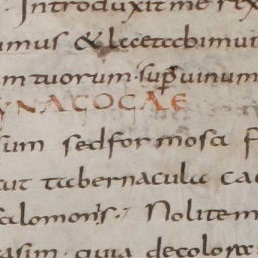 Introduxit me rex
imus & lętabimur
m tuorum · sup uinum
YNAGOGAE
sum sed formosa f
ut tabernacula ce
salomonis · Nolite m
asim · quia decolora